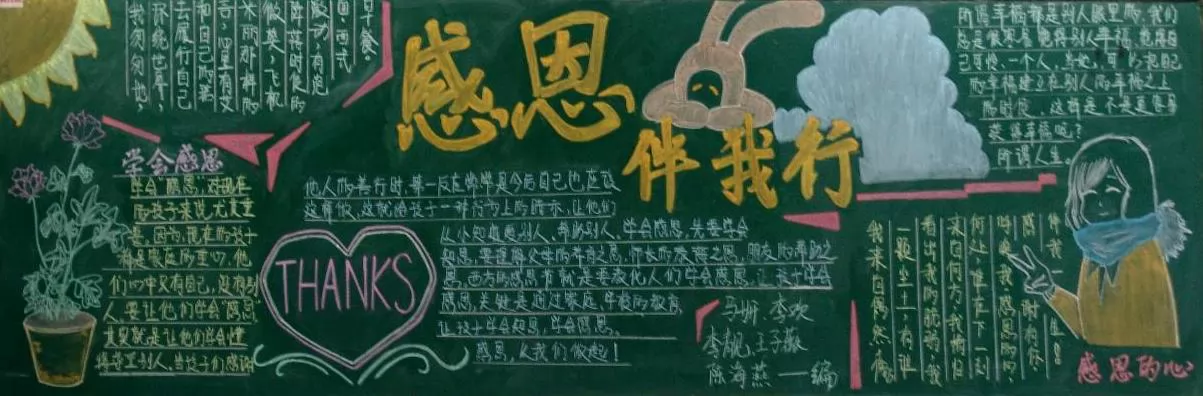 感恩
伴我行
早餐。
学会感恩
学会感恩,对现在
的孩子来说尤其重
要,因为,现在的孩子
都是家庭的重心,他
们心中只有自己,没有别
人,要让他们学会感恩
其实就是让他们学会懂
得尊重别人,当孩子们感谢
他人的善行时,第一反应常常是今后自己也应该
这样做,这就给孩子一种行为上的暗示,让他们
从小知道爱别人、帮助别人,学会感恩,先要学会
知恩,要理解父母的养育之恩,师长的教诲之恩,朋友的帮助之
恩,西方的感恩节就是要教化人们学会感恩,让孩子学会
感恩,关键是通过家庭、学校的教育,
让孩子学会知恩,学会感恩。
感恩,从我们做起!
THANKS
李欢
王子
陈海燕 一编
所谓幸福都是别人眼里的,我们
总是很容易觉得别人幸福,觉得自
的幸福建立在别人的幸福之上
的时候,这样是不是更容易
获得幸福呢?
所谓人生。
我来自偶然,像
一颗尘土,有谁
看出我的脆弱,我
来自何方,我情归
何处,谁在下一刻
呼唤我,感恩的心,
感谢有你,
伴我一生!
感恩的心